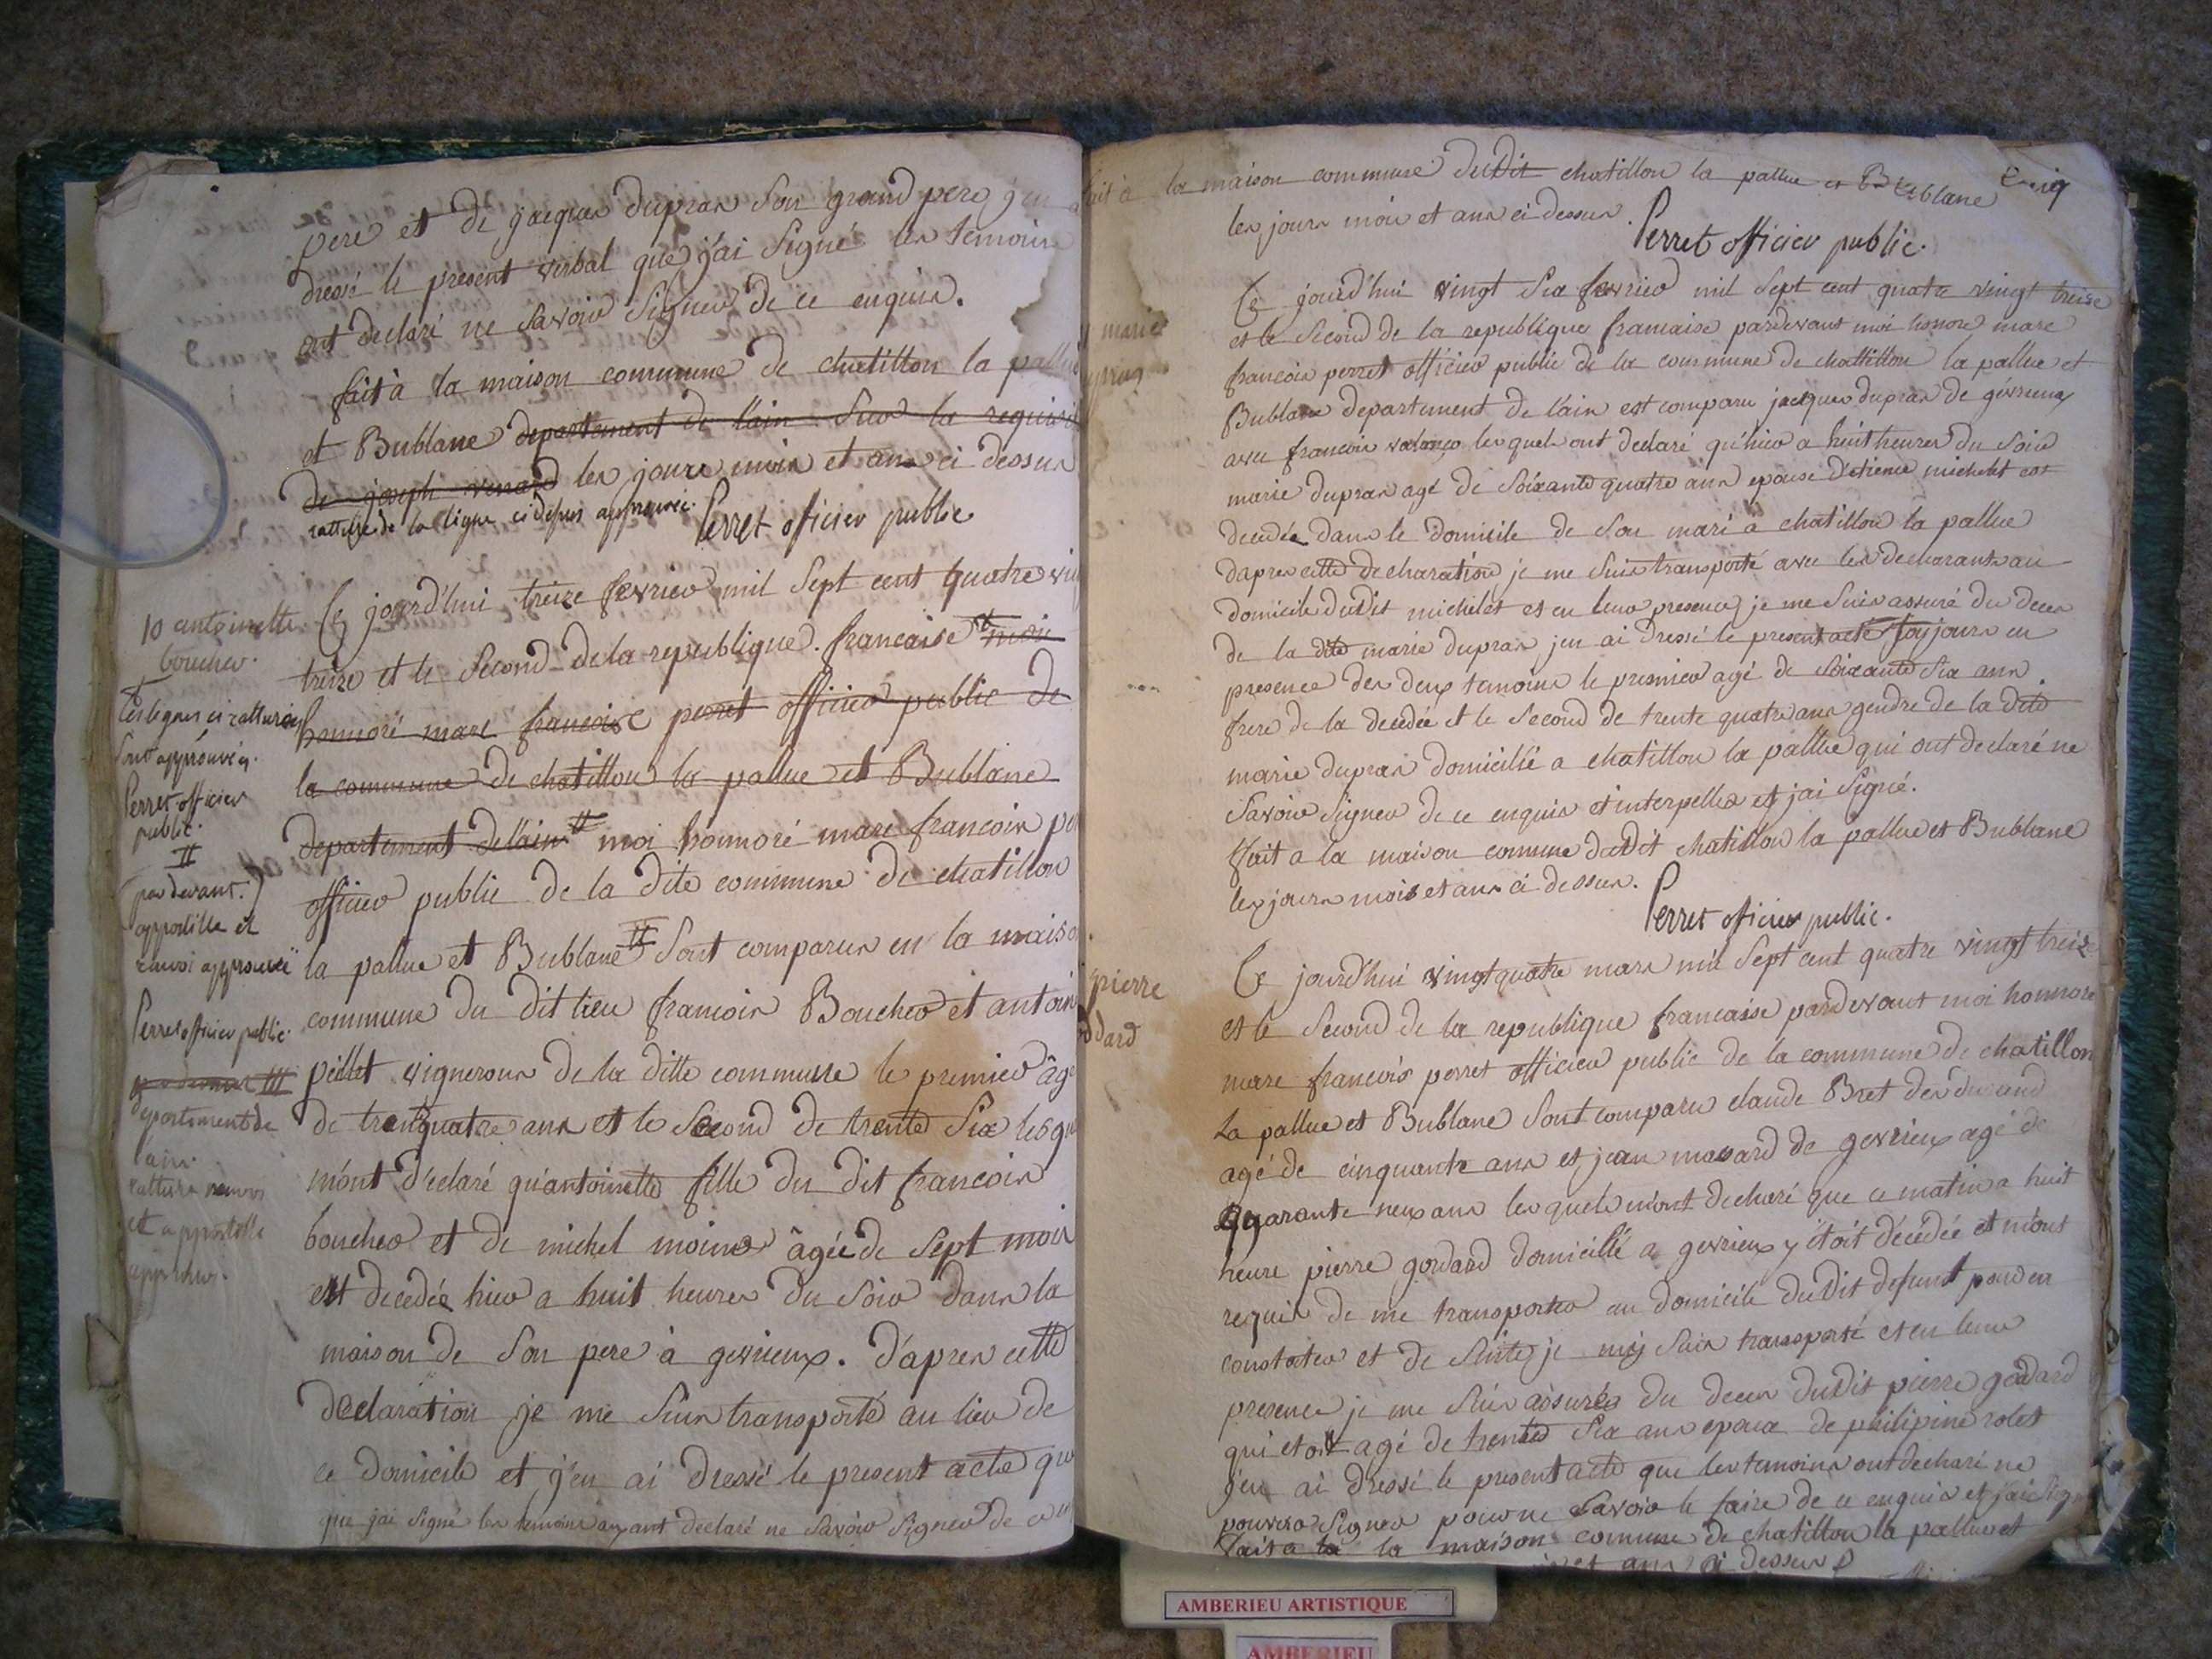 pere et de jacques dupras son grand pere j'en
dressé le present verbal que j'ai signé les temoins
ont declaré ne savoir signer de ce enquis.
fait à la maison commune de chatillon la pallue
et Bublane departement de l'ain sur la requisi
de joseph venard les jours mois et ans ci dessus
ratture de la ligne ci dessus approuvée. Perret officier public
10 antoinette
boucher.
Les lignes ci ratturées
sont approuvées.
Perret officier
public.
(par devant.)
appostille et
renvoi approuvé
Perret officier public.
departement de
l'ain.
ratture renvoi
et appostille
approuvé.
Ce jourd'hui treize fevrier mil sept cent quatre vin
treize et le second de la republique francaise moi
honnoré marc francoise perret officier public de
la commune de chatillon la pallue et Bublane
departement de l'ain moi honnoré marc francois pe
officier public de la dite commune de chatillon
la pallue et Bublane sont comparus en la maiso
commune du dit lieu francois Boucher et antoin
peillet vignerons de la ditte commune le premier âgé
de trentquatre ans et le second de trente six lesque
m'ont déclaré qu'antoinette fille du dit francois
boucher et de michel moine âgée de sept mois
est decedée hier a huit heures du soir dans la
maison de son pere à gevrieux. d'apres cette
declaration je me suis transporté au lieu de
ce domicile et j'en ai dressé le present acte que
que jai signé les temoins ayant declaré ne savoir signer de ce
fait à la maison commune dudit chatillon la pallue et Bublane
les jours mois et ans ci dessus. Perret officier public.
marie
Ce jourd'hui vingt six fevrier mil sept cent quatre vingt treize
et le second de la republique francaise pardevant moi honoré marc
francois perret officier public de la commune de chattillon la pallue et
Bublane departement de l'ain est comparu jacques dupras de gévrieux
avec francois lesquels ont declaré qu'hier a huit heures du soir
marie dupras agé de soixante quatre ans epouse d'etienne michelet est
decedée dans le domicile de son mari a chatillon la pallue
dapres cette declaration je me suis transporté avec les declarants au
domicile dudit michelet et en leur presence je me suis assuré du deces
de la dite marie dupras jen ai dressé le present acte toujours en
presence des deux temoins le premier agé de soixante six ans
frere de la decedée et le second de trente quatre ans gendre de la dite
marie dupras domicilié a chatillon la pallue qui ont declaré ne
savoir signer de ce enquis et interpellés et jai signé.
fait a la maison comune dudit chatillon la pallue et Bublane
les jours mois et ans ci dessus. Perret officier public.
pierre
Ce jourd'hui vingtquatre mars mil sept cent quatre vingt treize
et le second de la republique francaise pardevant moi honnore
marc francois perret officier public de la commune de chatillon
La pallue et Bublane sont comparu claude Bret des
agé de cinquante ans et jean de gevrieux agé de
quarante neuf ans lesquels m'ont declaré que ce matin a huit
heure pierre godard domicilié a gevrieux y étoit décédée et m'ont
requis de me transporter au domicile dudit defunt pour en
constater et de suite je my suis transporté et en leur
presence je me suis assurés du deces dudit pierre godard
qui etoit agé de trente six ans epoux de philipine rolet
j'en ai dressé le present acte que les temoins ont declaré ne
pouvoir signer pour ne savoir le faire de ce enquis et jai sig
fait a la la maison comune de chatillon la pallue et
et ans ci dessus
AMBERIEU ARTISTIQUE
AMBERIEU